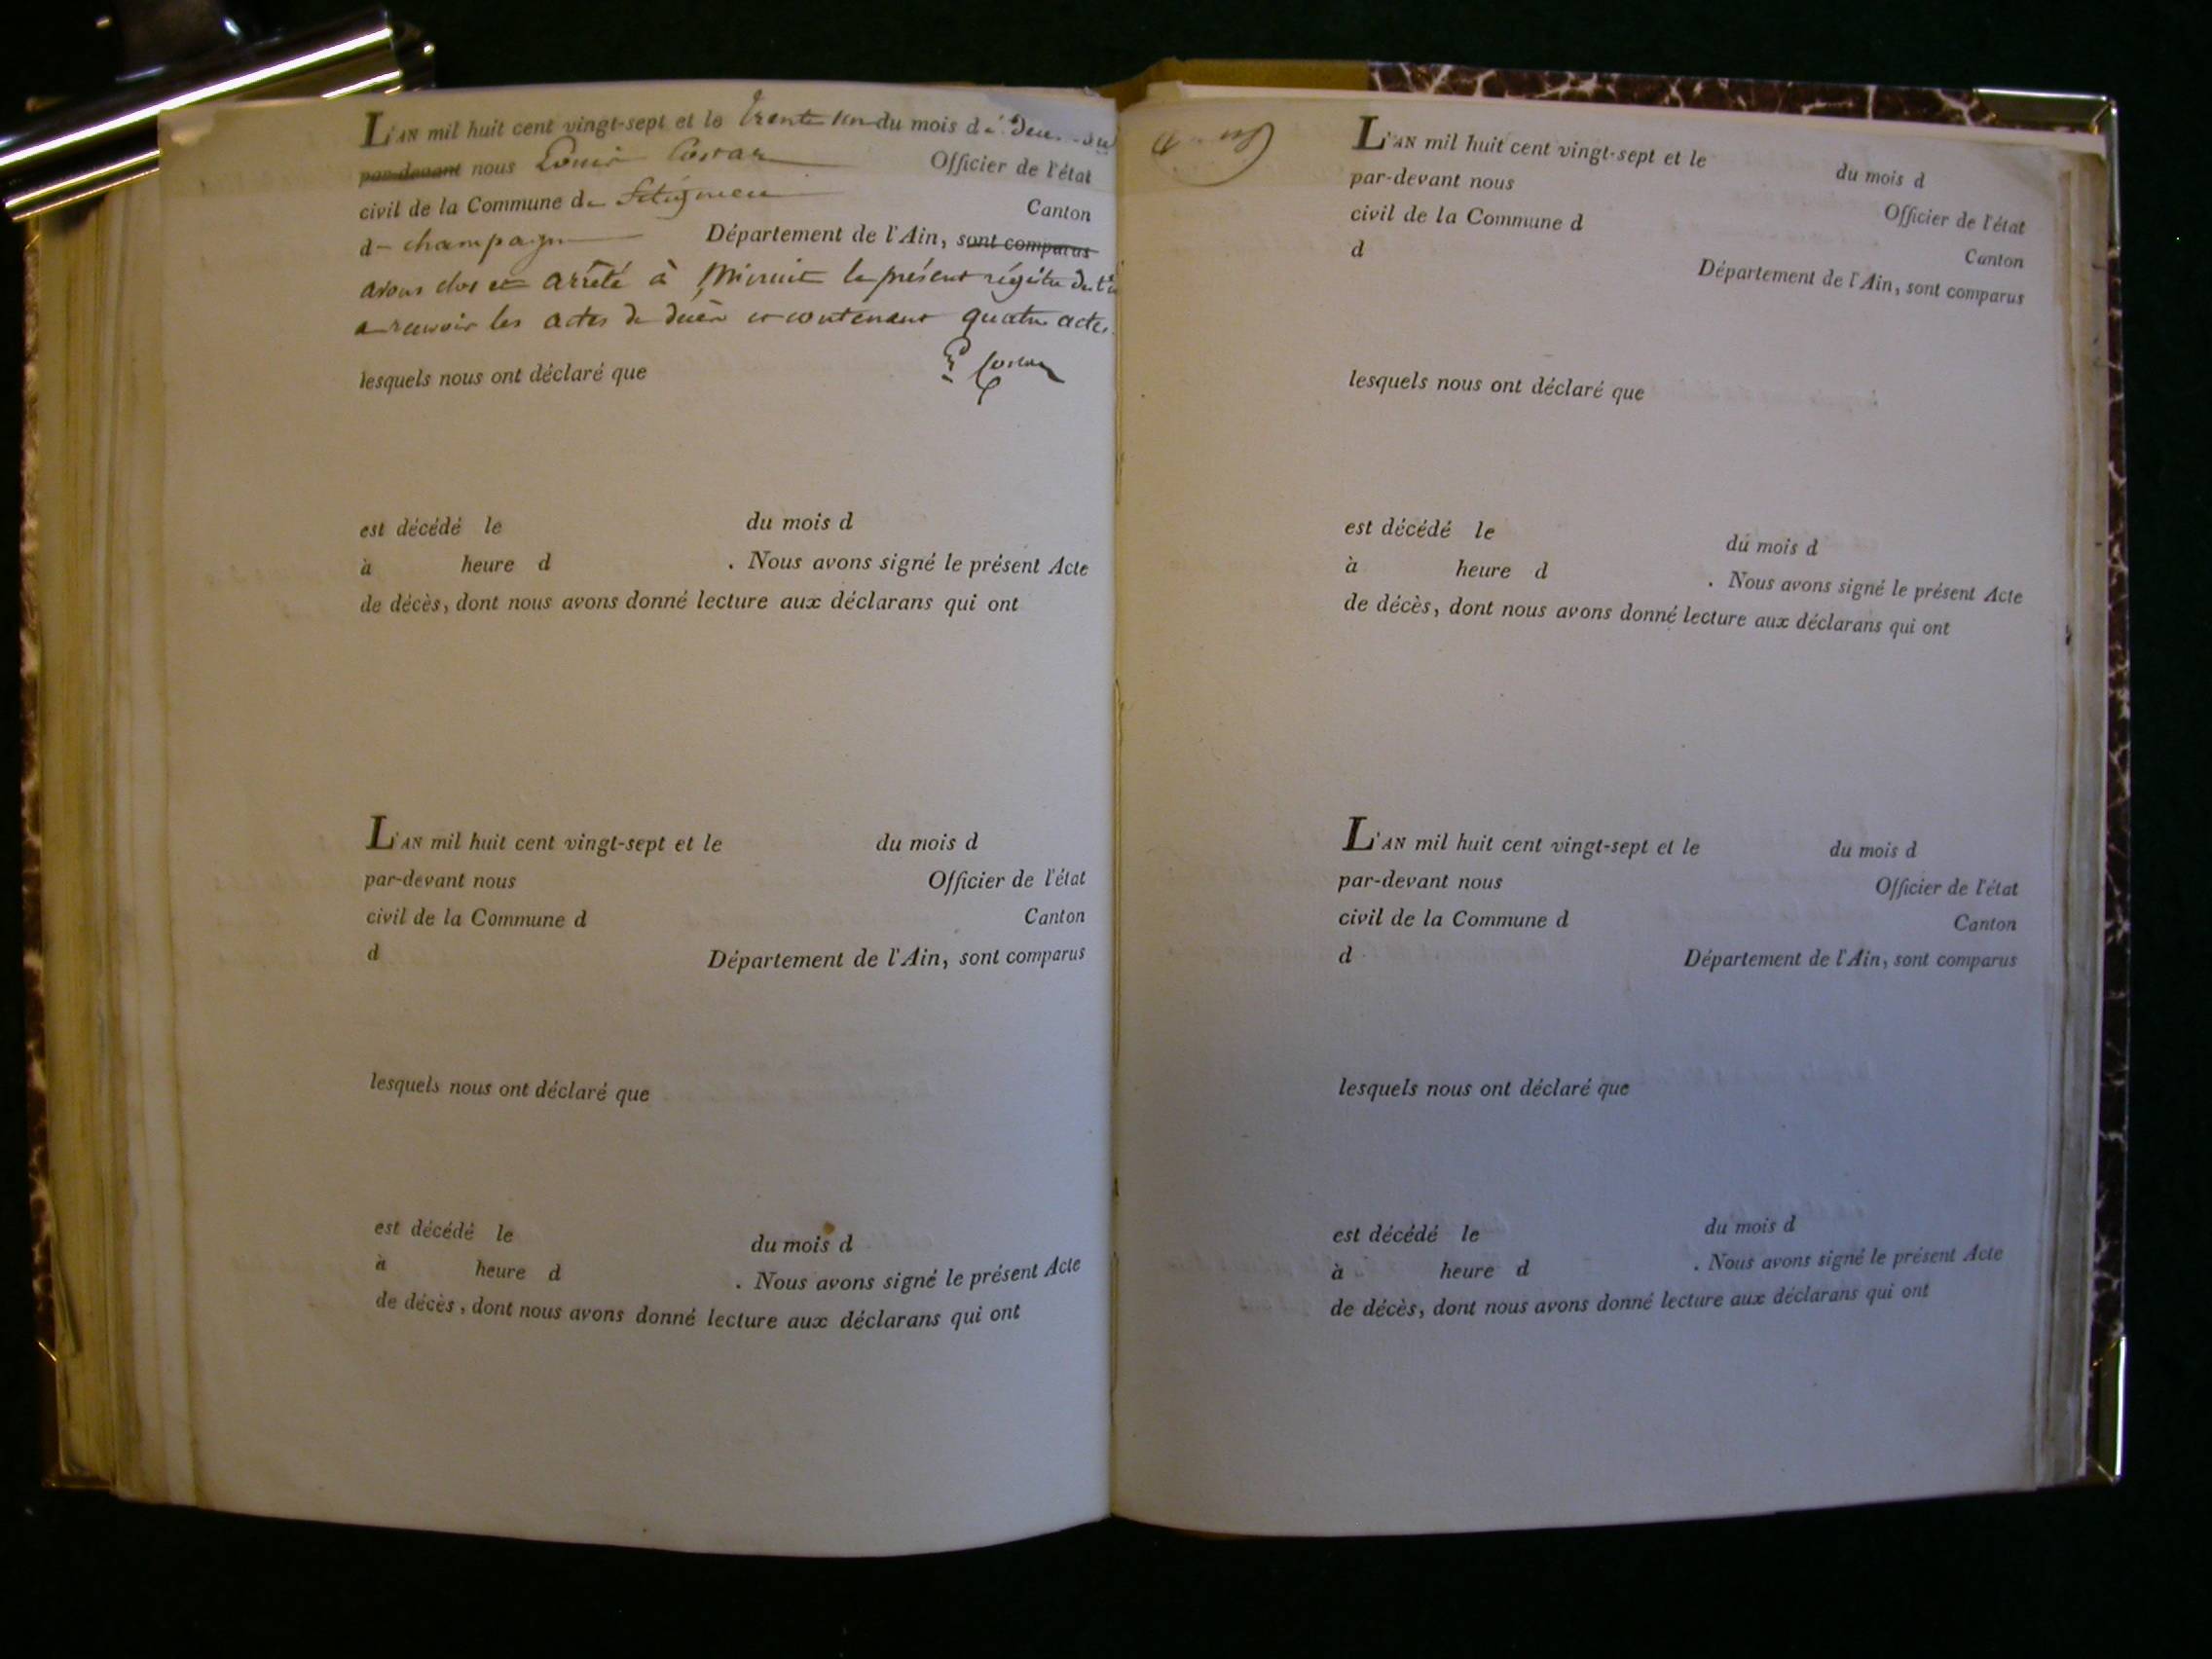 L'AN mil huit cent vingt-sept et le trente un du mois de
par-devant nous Louis Costaz Officier de l'état
civil de la Commune de Canton
d champagne Département de l'Ain, sont comparus
avons clos et arrêté à Minuit le présent régistre
a recevoir les actes de décès et contenant quatre actes
lesquels nous ont déclaré que
est décédé le du mois d
à heure d . Nous avons signé le présent Acte
de décès, dont nous avons donné lecture aux déclarans qui ont
L'AN mil huit cent vingt-sept et le du mois d
par-devant nous Officier de l'état
civil de la Commune d Canton
d Département de l'Ain, sont comparus
lesquels nous ont déclaré que
est décédé le du mois d
à heure d . Nous avons signé le présent Acte
de décès, dont nous avons donné lecture aux déclarans qui ont
L'AN mil huit cent vingt-sept et le du mois d
par-devant nous Officier de l'état
civil de la Commune d Canton
d Département de l'Ain, sont comparus
lesquels nous ont déclaré que
est décédé le du mois d
à heure d . Nous avons signé le présent Acte
de décès, dont nous avons donné lecture aux déclarans qui ont
L'AN mil huit cent vingt-sept et le du mois d
par-devant nous Officier de l'état
civil de la Commune d Canton
d Département de l'Ain, sont comparus
lesquels nous ont déclaré que
est décédé le du mois d
à heure d . Nous avons signé le présent Acte
de décès, dont nous avons donné lecture aux déclarans qui ont